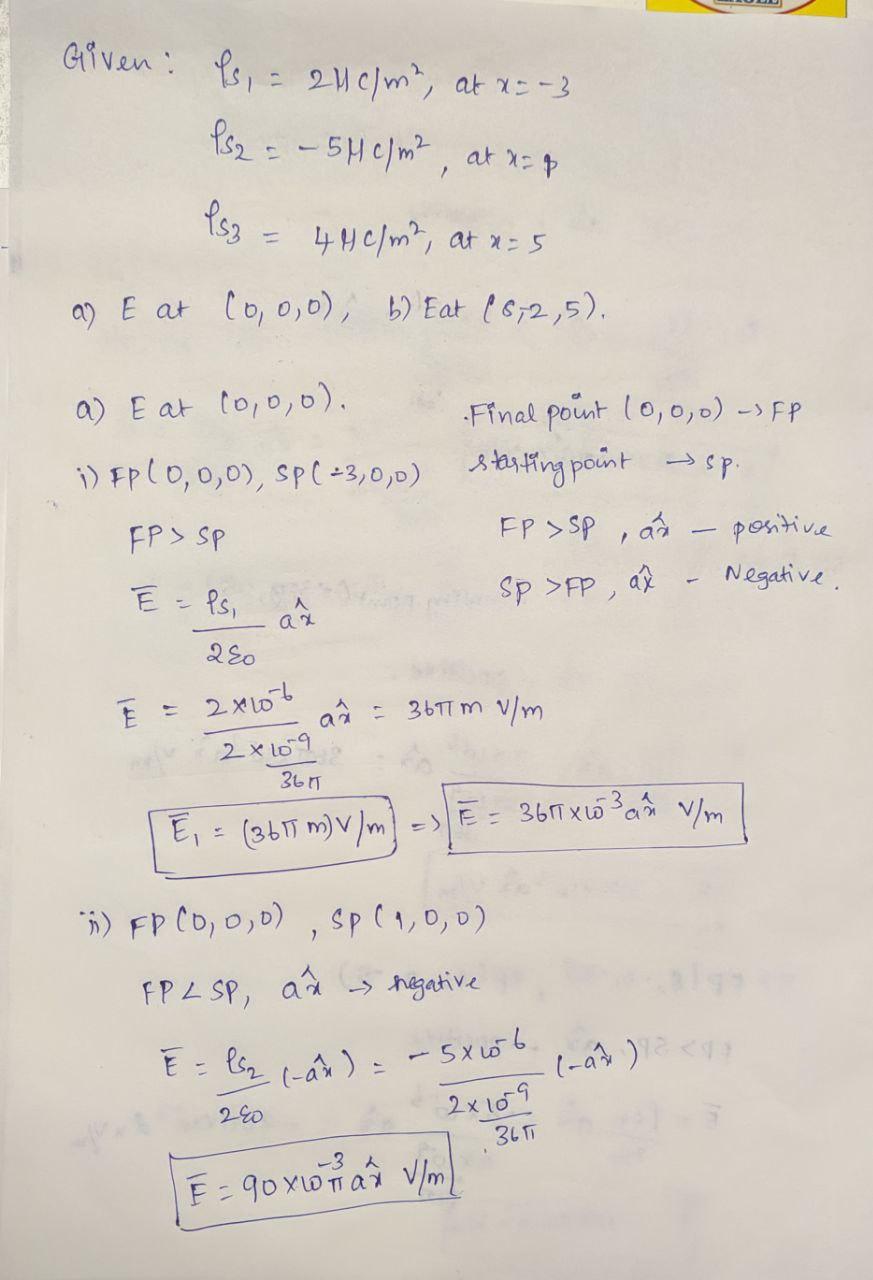 Given : ρs₁ = 2μc/m², at x = -3
ρs₂ = -5μc/m², at x = 1
ρs₃ = 4μc/m², at x = 5
a) E at (0,0,0), b) E at (8,-2,5).
a) E at (0,0,0).
Final point (0,0,0) → FP
i) FP(0,0,0), SP(-3,0,0)
starting point → sp.
FP > SP
FP > SP, ax̂ - positive
SP > FP, ax̂ - Negative.
Ē = ρs₁/2ε0 ax̂
Ē = 2×10⁻⁶/(2×10⁻⁹/36π) ax̂ = 36π m V/m
Ē₁ = (36π m) V/m => Ē = 36π×10⁻³ ax̂ V/m
ii) FP(0,0,0), SP(1,0,0)
FP < SP, ax̂ → negative
Ē = ρs₂/2ε0 (-ax̂) = -5×10⁻⁶/(2×10⁻⁹/36π) (-ax̂)
Ē = 90×10⁻³π ax̂ V/m